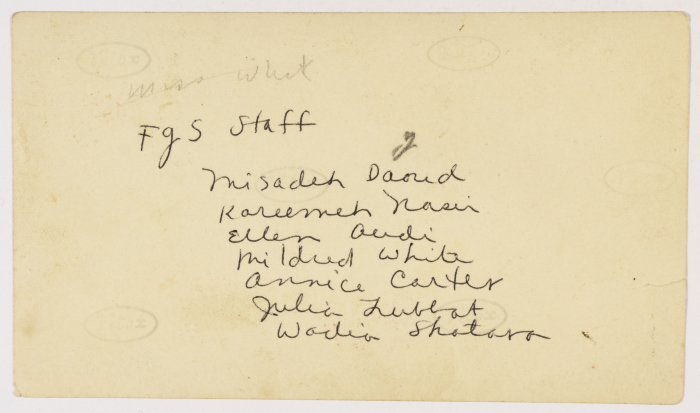 Miss Whit
FgS Staff
Misadeh Daoud
Kareemeh Nasir
Ellen Audi
Mildred White
Annice Carter
Julia Zubbat
Wadia Shatara